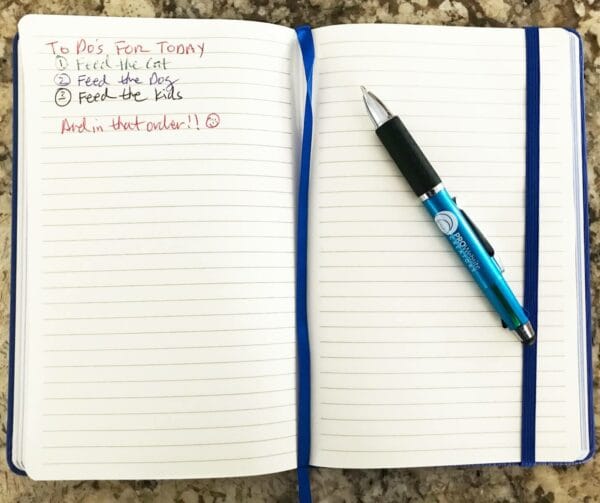 To Do's For Today
① Feed the Cat
② Feed the Dog
③ Feed the Kids
And in that order!! ☺
PROWebsite
CREATORS